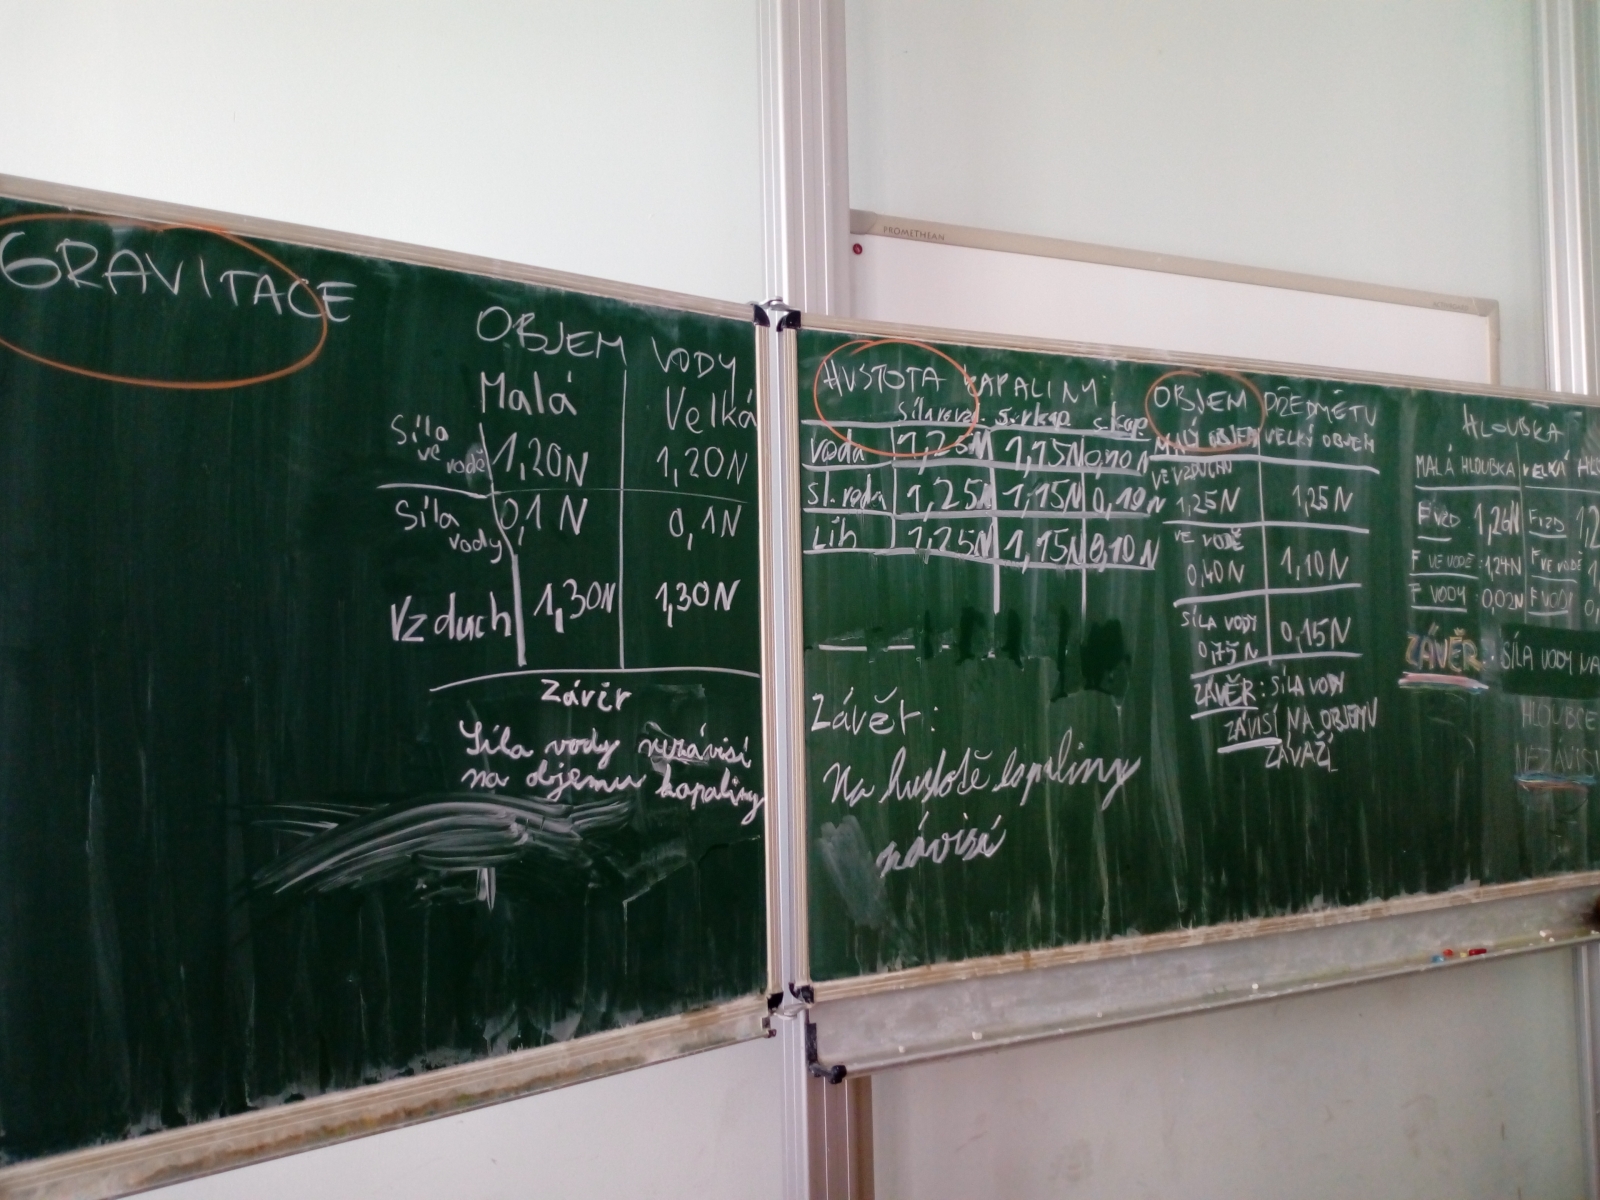 GRAVITACE
OBJEM VODY
Malá Velká
Síla ve vodě 1,20N 1,20N
Síla vody 0,1N 0,1N
Vzduch 1,30N 1,30N
Závěr
Síla vody nezávisí
na objemu kapaliny
PROMETHEAN
HUSTOTA KAPALINY:
voda 1,25N 1,15N 0,10N
sl. voda 1,25N 1,15N
Líh 1,25N 1,15N 0,10N
Závěr:
Na hustotě kapaliny
závisí
OBJEM PŘEDMĚTU
MALÝ OBJEM VELKÝ OBJEM
VE VZDUCHU
1,25N 1,25N
VE VODĚ
0,40N 1,10N
SÍLA VODY
0,75N 0,15N
ZÁVĚR: SÍLA VODY
ZÁVISÍ NA OBJEMU
ZÁVAŽÍ
HLOUBKA
MALÁ HLOUBKA VELKÁ
F VZD 1,26N F VZD
F VE VODĚ: 1,24N F VE VODĚ
F VODY: 0,02N F VODY
ZÁVĚR: SÍLA VODY NA
HLOUBCE
NEZÁVISÍ